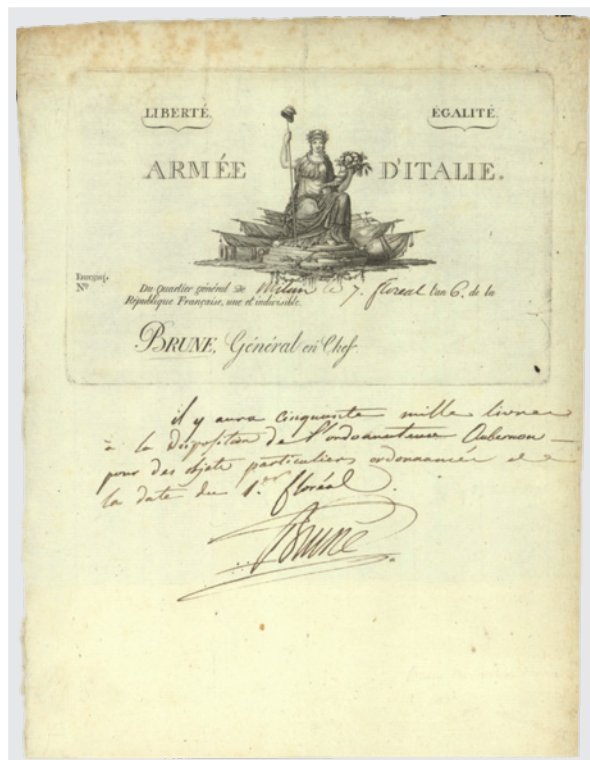 LIBERTÉ.
ÉGALITÉ.
ARMÉE
D'ITALIE.
Enregist.
Nº
Du Quartier général de Milan le 7. floreal l'an 6. de la
République Française, une et indivisible.
BRUNE, Général en Chef.
il y aura cinquante mille livres
à la disposition de l'ordonnateur Aubernon
pour des objets particuliers ordonnancés
la date du 1.er floréal.
Brune